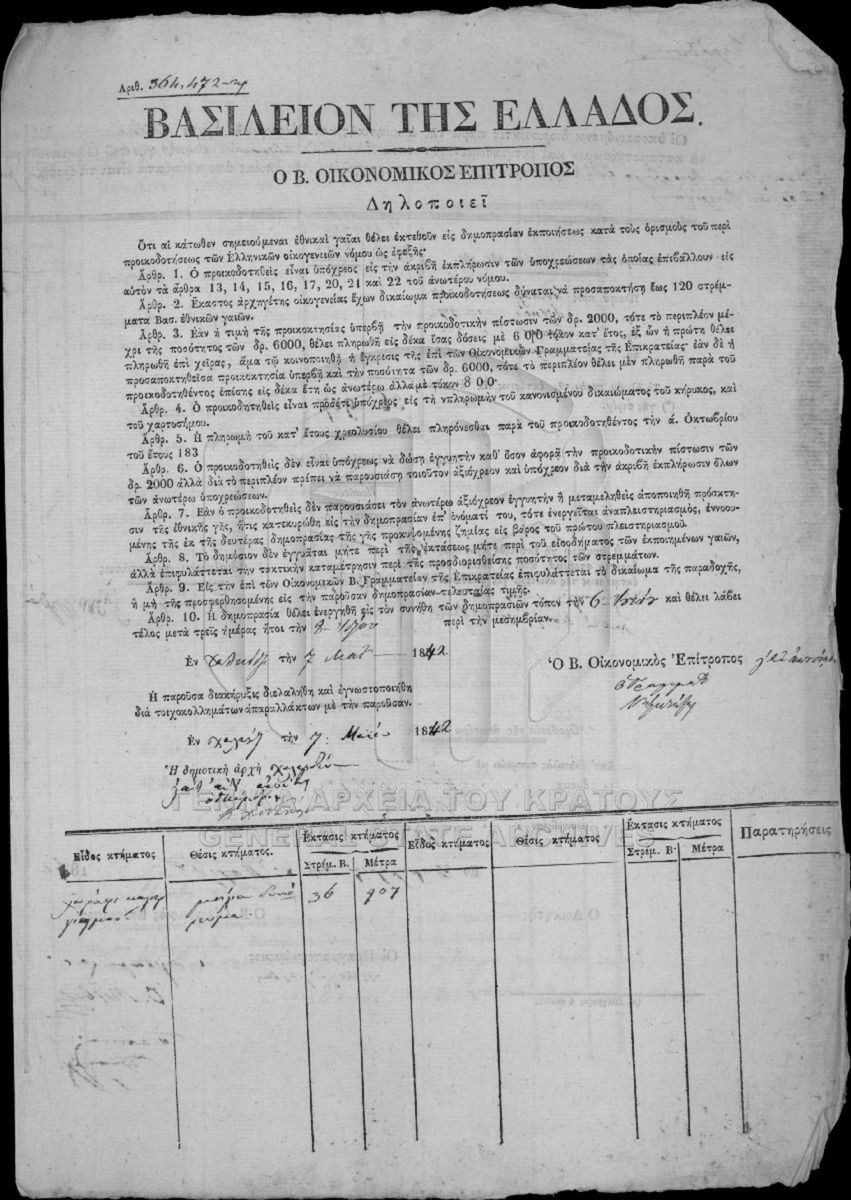 Αριθ. 364,472
ΒΑΣΙΛΕΙΟΝ ΤΗΣ ΕΛΛΑΔΟΣ.
Ο Β. ΟΙΚΟΝΟΜΙΚΟΣ ΕΠΙΤΡΟΠΟΣ
Δηλοποιεῖ
Ὅτι αἱ κάτωθεν σημειούμεναι ἐθνικαὶ γαῖαι θέλει ἐκτεθοῦν εἰς δημοπρασίαν ἐκποιήσεως κατὰ τοὺς ὁρισμοὺς τοῦ περὶ
προικοδοτήσεως τῶν Ἑλληνικῶν οἰκογενειῶν νόμου ὡς ἐφεξῆς·
Ἄρθρ. 1. Ὁ προικοδοτηθεὶς εἶναι ὑπόχρεος εἰς τὴν ἀκριβῆ ἐκπλήρωσιν τῶν ὑποχρεώσεων τὰς ὁποίας ἐπιβάλλουν εἰς
αὐτὸν τὰ ἄρθρα 13, 14, 15, 16, 17, 20, 21 καὶ 22 τοῦ ἀνωτέρω νόμου.
Ἄρθρ. 2. Ἕκαστος ἀρχηγέτης οἰκογενείας ἔχων δικαίωμα προικοδοτήσεως δύναται νὰ προσαποκτήση ἕως 120 στρέμ-
ματα Βασ. ἐθνικῶν γαιῶν.
Ἄρθρ. 3. Ἐὰν ἡ τιμὴ τῆς προικοκτησίας ὑπερβῇ τὴν προικοδοτικὴν πίστωσιν τῶν δρ. 2000, τότε τὸ περιπλέον μέ-
χρι τῆς ποσότητος τῶν δρ. 6000, θέλει πληρωθῆ εἰς δέκα ἴσας δόσεις μὲ 6 0|0 τόκον κατ' ἔτος, ἐξ ὧν ἡ πρώτη θέλει
πληρωθῆ ἐπὶ χεῖρας, ἅμα τῷ κοινοποιηθῇ ἡ ἔγκρισις τῆς ἐπὶ τῶν Οἰκονομικῶν Γραμματείας τῆς Ἐπικρατείας· ἐὰν δὲ ἡ
προσαποκτηθεῖσα προικοκτησία ὑπερβῇ καὶ τὴν ποσότητα τῶν δρ. 6000, τότε τὸ περιπλέον θέλει μὲν πληρωθῆ παρὰ τοῦ
προικοδοτηθέντος ἐπίσης εἰς δέκα ἔτη ὡς ἀνωτέρω ἀλλὰ μὲ τόκον 8 0|0·
Ἄρθρ. 4. Ὁ προικοδοτηθεὶς εἶναι προσέτι ὑπόχρεος εἰς τὴν πληρωμὴν τοῦ κανονισμένου δικαιώματος τοῦ κήρυκος, καὶ
τοῦ χαρτοσήμου.
Ἄρθρ. 5. Ἡ πληρωμὴ τοῦ κατ' ἔτους χρεολυσίου θέλει πληρόνεσθαι παρὰ τοῦ προικοδοτηθέντος τὴν ά. Ὀκτωβρίου
τοῦ ἔτους 183
Ἄρθρ. 6. Ὁ προικοδοτηθεὶς δὲν εἶναι ὑπόχρεως νὰ δώση ἐγγυητὴν καθ' ὅσον ἀφορᾷ τὴν προικοδοτικὴν πίστωσιν τῶν
δρ. 2000 ἀλλὰ διὰ τὸ περιπλέον πρέπει νὰ παρουσιάση τοιοῦτον ἀξιόχρεον καὶ ὑπόχρεον διὰ τὴν ἀκριβῆ ἐκπλήρωσιν ὅλων
τῶν ἀνωτέρω ὑποχρεώσεων.
Ἄρθρ. 7. Ἐὰν ὁ προικοδοτηθεὶς δὲν παρουσιάσει τὸν ἀνωτέρω ἀξιόχρεον ἐγγυητὴν ἢ μεταμεληθεὶς ἀποποιηθῆ πρόσκτη-
σιν τῆς ἐθνικῆς γῆς, ἥτις κατεκυρώθη εἰς τὴν δημοπρασίαν ἐπ' ὀνόματί του, τότε ἐνεργεῖται ἀναπλειστηριασμὸς, ἐννοου-
μένης τῆς ἐκ τῆς δευτέρας δημοπρασίας τῆς γῆς προκυψομένης ζημίας εἰς βάρος τοῦ πρώτου πλειστηριασμοῦ.
Ἄρθρ. 8. Τὸ δημόσιον δὲν ἐγγυᾶται μήτε περὶ τῆς ἐκτάσεως μήτε περὶ τοῦ εἰσοδήματος τῶν ἐκποιημένων γαιῶν,
ἀλλὰ ἐπιφυλάττεται τὴν τακτικὴν καταμέτρησιν περὶ τῆς προσδιορισθείσης ποσότητος τῶν στρεμμάτων.
Ἄρθρ. 9. Εἰς τὴν ἐπὶ τῶν Οἰκονομικῶν Β. Γραμματείαν τῆς Ἐπικρατείας ἐπιφυλάττεται τὸ δικαίωμα τῆς παραδοχῆς,
ἢ μὴ τῆς προσφερθησομένης εἰς τὴν παροῦσαν δημοπρασίαν τελευταίας τιμῆς.
Ἄρθρ. 10. Ἡ δημοπρασία θέλει ἐνεργηθῆ εἰς τὸν συνήθη τῶν δημοπρασιῶν τόπον τὴν 6 καὶ θέλει λάβει
τέλος μετὰ τρεῖς ἡμέρας ἤτοι τὴν 8 περὶ τὴν μεσημβρίαν.
Ἐν τὴν 7 1842
Ὁ Β. Οἰκονομικὸς Ἐπίτροπος
Ἡ παροῦσα διακήρυξις διελαλήθη καὶ ἐγνωστοποιήθη
διὰ τοιχοκολλημάτων ἀπαραλλάκτων μὲ τὴν παροῦσαν.
Ἐν τὴν 7 Μαΐου 1842
Ἡ δημοτικὴ ἀρχὴ
ΓΕΝΙΚΑ ΑΡΧΕΙΑ ΤΟΥ ΚΡΑΤΟΥΣ
GENERAL STATE ARCHIVES
Εἶδος κτήματος Θέσις κτήματος. Ἔκτασις κτήματος Εἶδος κτήματος Θέσις κτήματος Ἔκτασις κτήματος Παρατηρήσεις
Στρέμ. Β. Μέτρα Στρέμ. Β. Μέτρα
36 907
ρεύμα